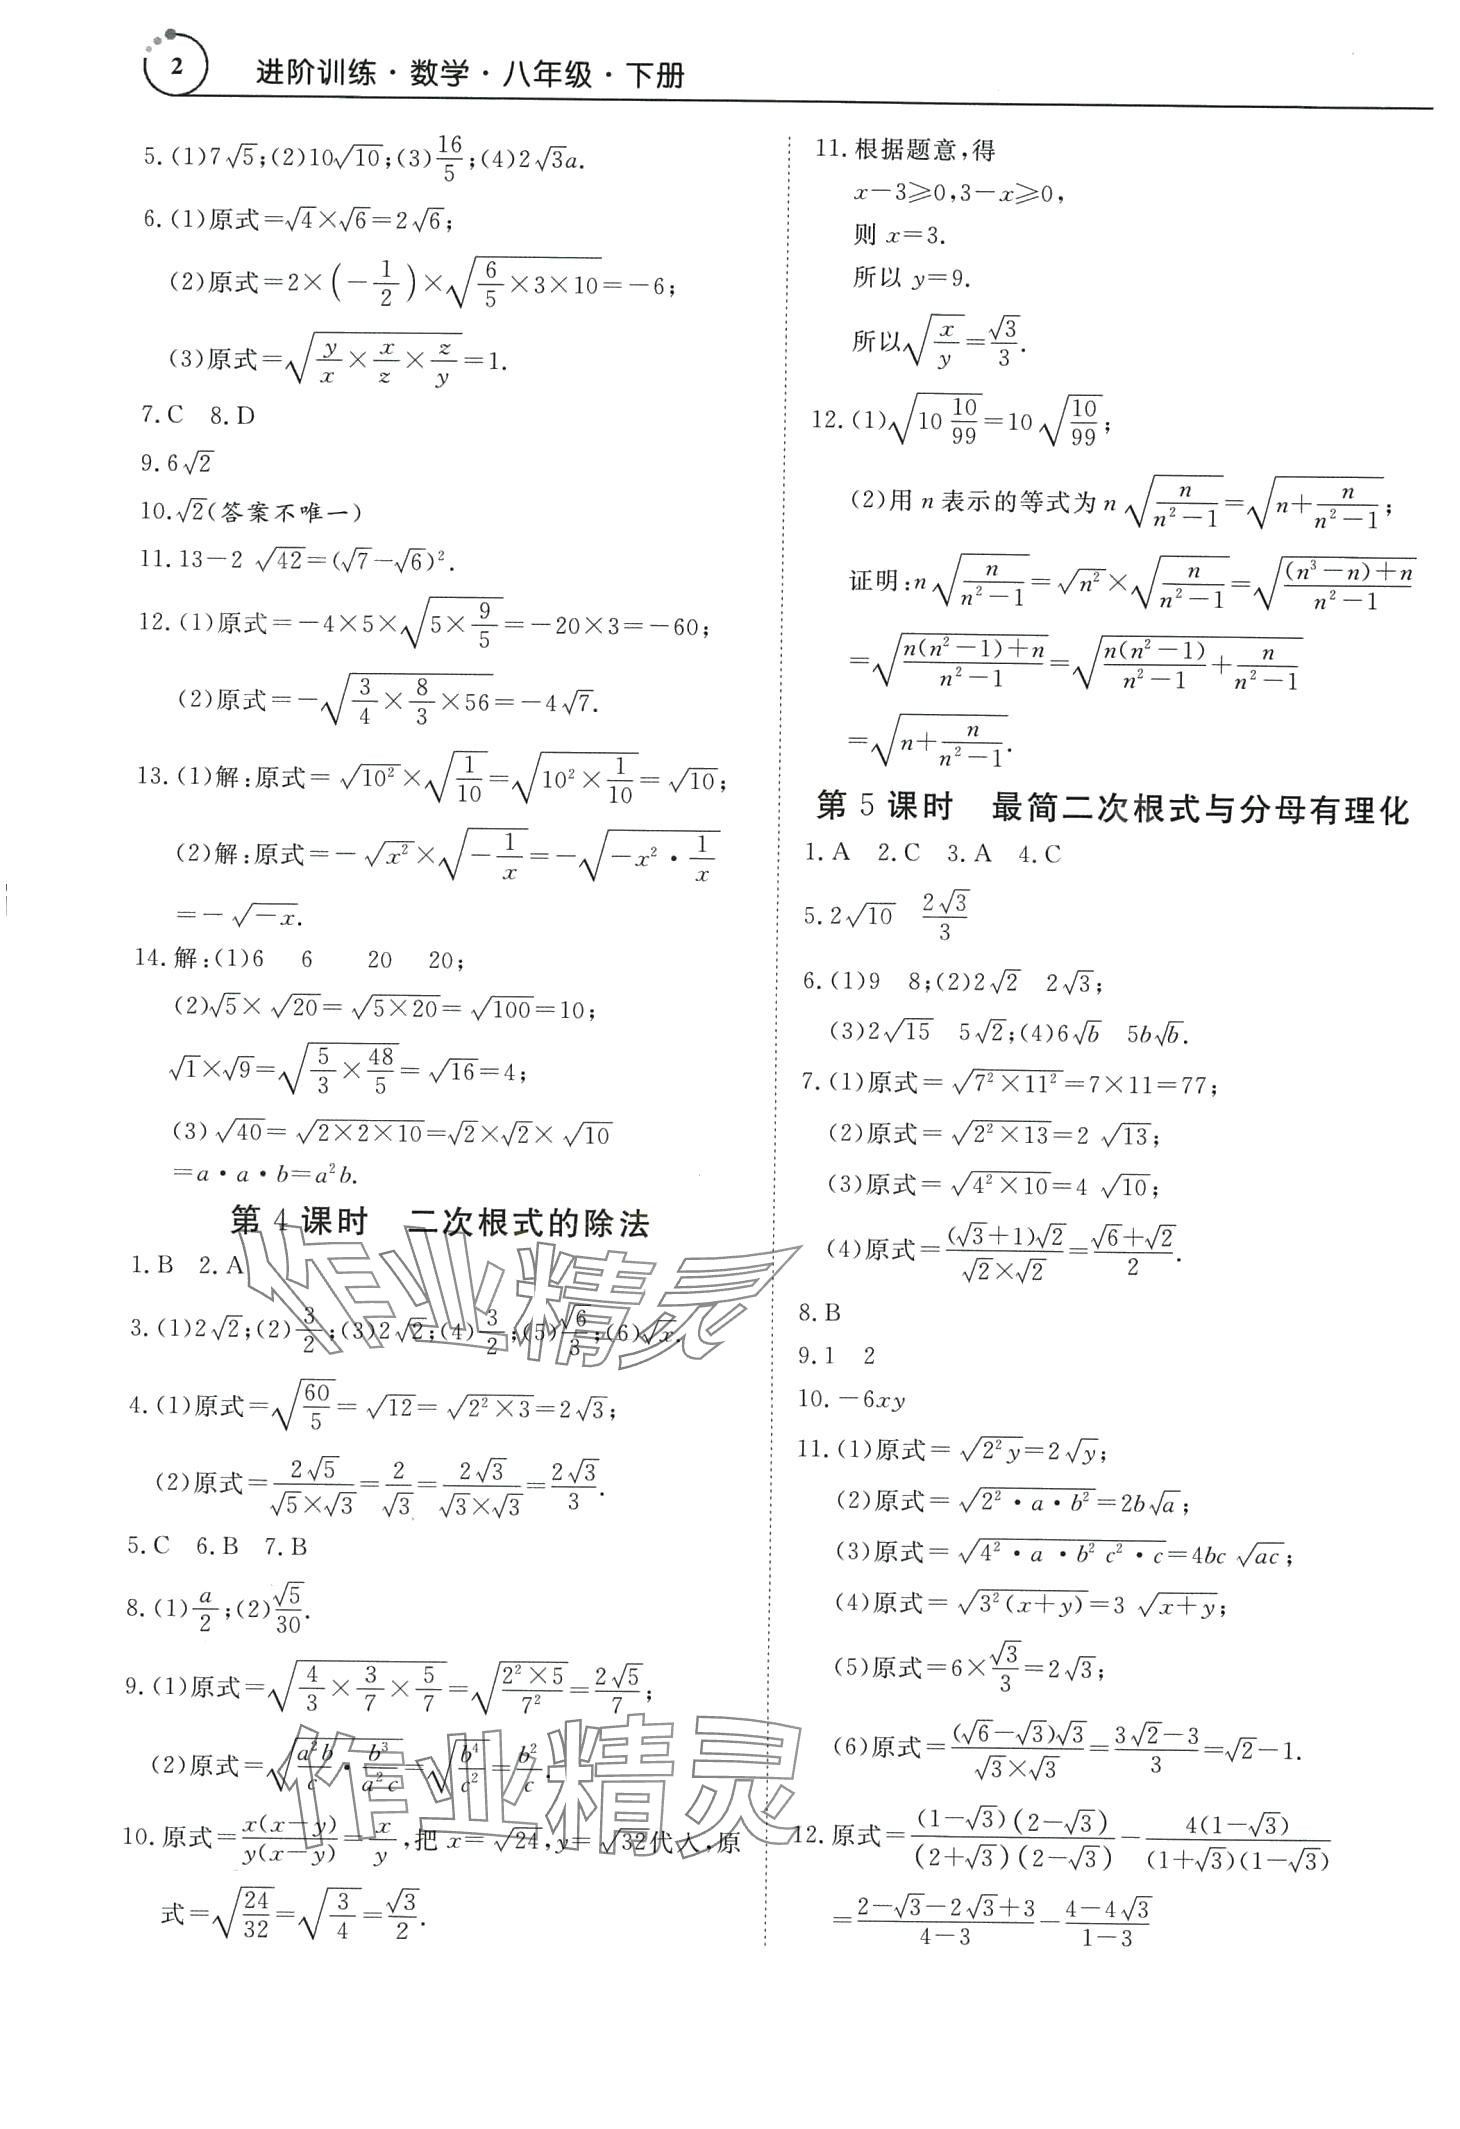 2
进阶训练·数学·八年级·下册
5.(1)7√5;(2)10√10;(3)16/5;(4)2√3a.
6.(1)原式=√4×√6=2√6;
(2)原式=2×(-1/2)×√(6/5×3×10)=-6;
(3)原式=√(y/x×x/z×z/y)=1.
7.C 8.D
9.6√2
10.√2(答案不唯一)
11.13-2√42=(√7-√6)².
12.(1)原式=-4×5×√(5×9/5)=-20×3=-60;
(2)原式=-√(3/4×8/3×56)=-4√7.
13.(1)解:原式=√(10²)×√(1/10)=√(10²×1/10)=√10;
(2)解:原式=-√(x²)×√(-1/x)=-√(-x²·1/x)
=-√(-x).
14.解:(1)6 6 20 20;
(2)√5×√20=√(5×20)=√100=10;
√1×√9=√(5/3×48/5)=√16=4;
(3)√40=√(2×2×10)=√2×√2×√10
=a·a·b=a²b.
第4课时 二次根式的除法
1.B 2.A
3.(1)2√2;(2)3/2;(3)2√2;(4)3/2;(5)√6/3;(6)√x.
4.(1)原式=√(60/5)=√12=√(2²×3)=2√3;
(2)原式=2√5/(√5×√3)=2/√3=2√3/(√3×√3)=2√3/3.
5.C 6.B 7.B
8.(1)a/2;(2)√5/30.
9.(1)原式=√(4/3×3/7×5/7)=√((2²×5)/7²)=2√5/7;
(2)原式=√(a²b/c·b³/(a²c))=√(b⁴/c²)=b²/c.
10.原式=x(x-y)/(y(x-y))=x/y,把x=√24,y=√32代入,原
式=√(24/32)=√(3/4)=√3/2.
11.根据题意,得
x-3≥0,3-x≥0,
则x=3.
所以y=9.
所以√(x/y)=√3/3.
12.(1)√(10 10/99)=10√(10/99);
(2)用n表示的等式为n√(n/(n²-1))=√(n+n/(n²-1));
证明:n√(n/(n²-1))=√(n²)×√(n/(n²-1))=√(((n³-n)+n)/(n²-1))
=√((n(n²-1)+n)/(n²-1))=√(n(n²-1)/(n²-1)+n/(n²-1))
=√(n+n/(n²-1)).
第5课时 最简二次根式与分母有理化
1.A 2.C 3.A 4.C
5.2√10 2√3/3
6.(1)9 8;(2)2√2 2√3;
(3)2√15 5√2;(4)6√b 5b√b.
7.(1)原式=√(7²×11²)=7×11=77;
(2)原式=√(2²×13)=2√13;
(3)原式=√(4²×10)=4√10;
(4)原式=(√3+1)√2/(√2×√2)=(√6+√2)/2.
8.B
9.1 2
10.-6xy
11.(1)原式=√(2²y)=2√y;
(2)原式=√(2²·a·b²)=2b√a;
(3)原式=√(4²·a·b²c²·c)=4bc√(ac);
(4)原式=√(3²(x+y))=3√(x+y);
(5)原式=6×√3/3=2√3;
(6)原式=(√6-√3)√3/(√3×√3)=(3√2-3)/3=√2-1.
12.原式=(1-√3)(2-√3)/((2+√3)(2-√3))-4(1-√3)/((1+√3)(1-√3))
=(2-√3-2√3+3)/(4-3)-(4-4√3)/(1-3)
作业精灵
作业精灵